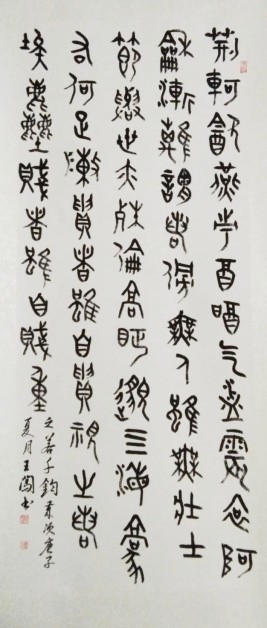 荊軻飲燕市酒酣气益震哀歌
龢漸離謂若傍無人雖無壯士
節與世亦殊倫高眄邈四海豪
右何足陳貴者雖自貴視之若
埃塵賤者雖自賤重
之若千鈞 歲次庚子
夏月王闖书